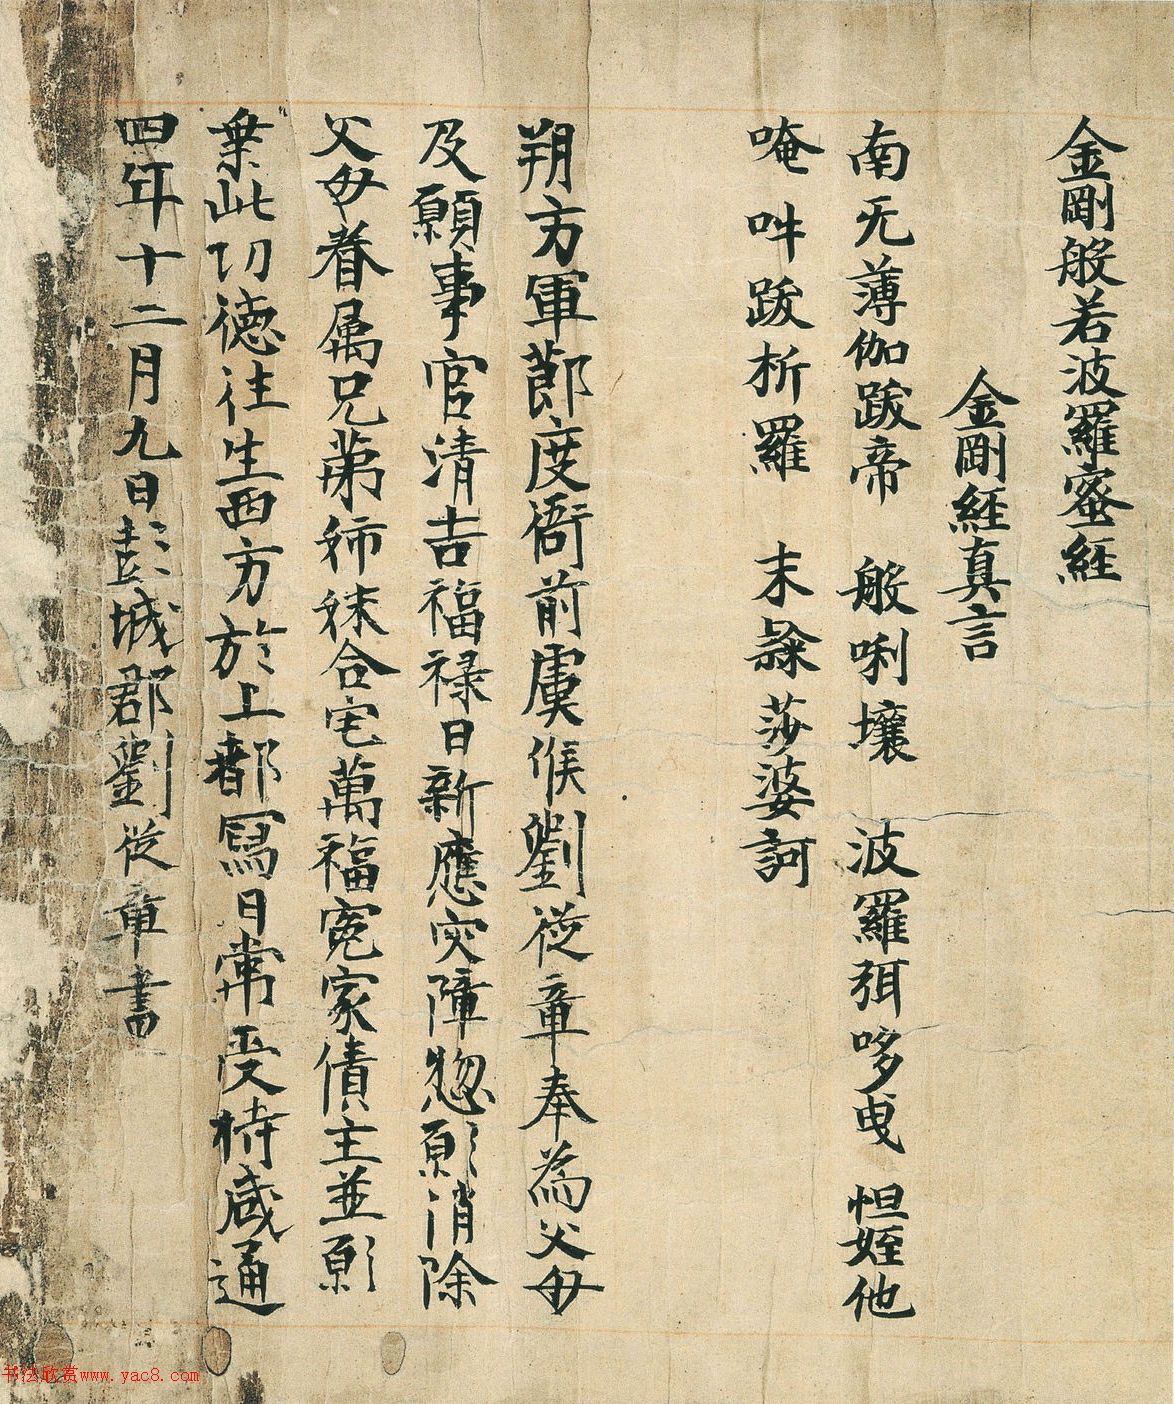 金剛般若波羅蜜經
金剛經真言
南无薄伽跋帝 般唎壤 波羅弭哆曳 怛姪他
唵 吽 跋析羅 末 莎婆訶
朔方軍節度衙前虞候劉從章奉為父母
及願事官清吉福祿日新應灾障惣願消除
父母眷属兄弟姉妹合宅萬福寃家債主並願
乗此功德往生西方於上都寫日常受持咸通
四年十二月九日彭城郡劉從章書
书法欣赏www.yac8.com